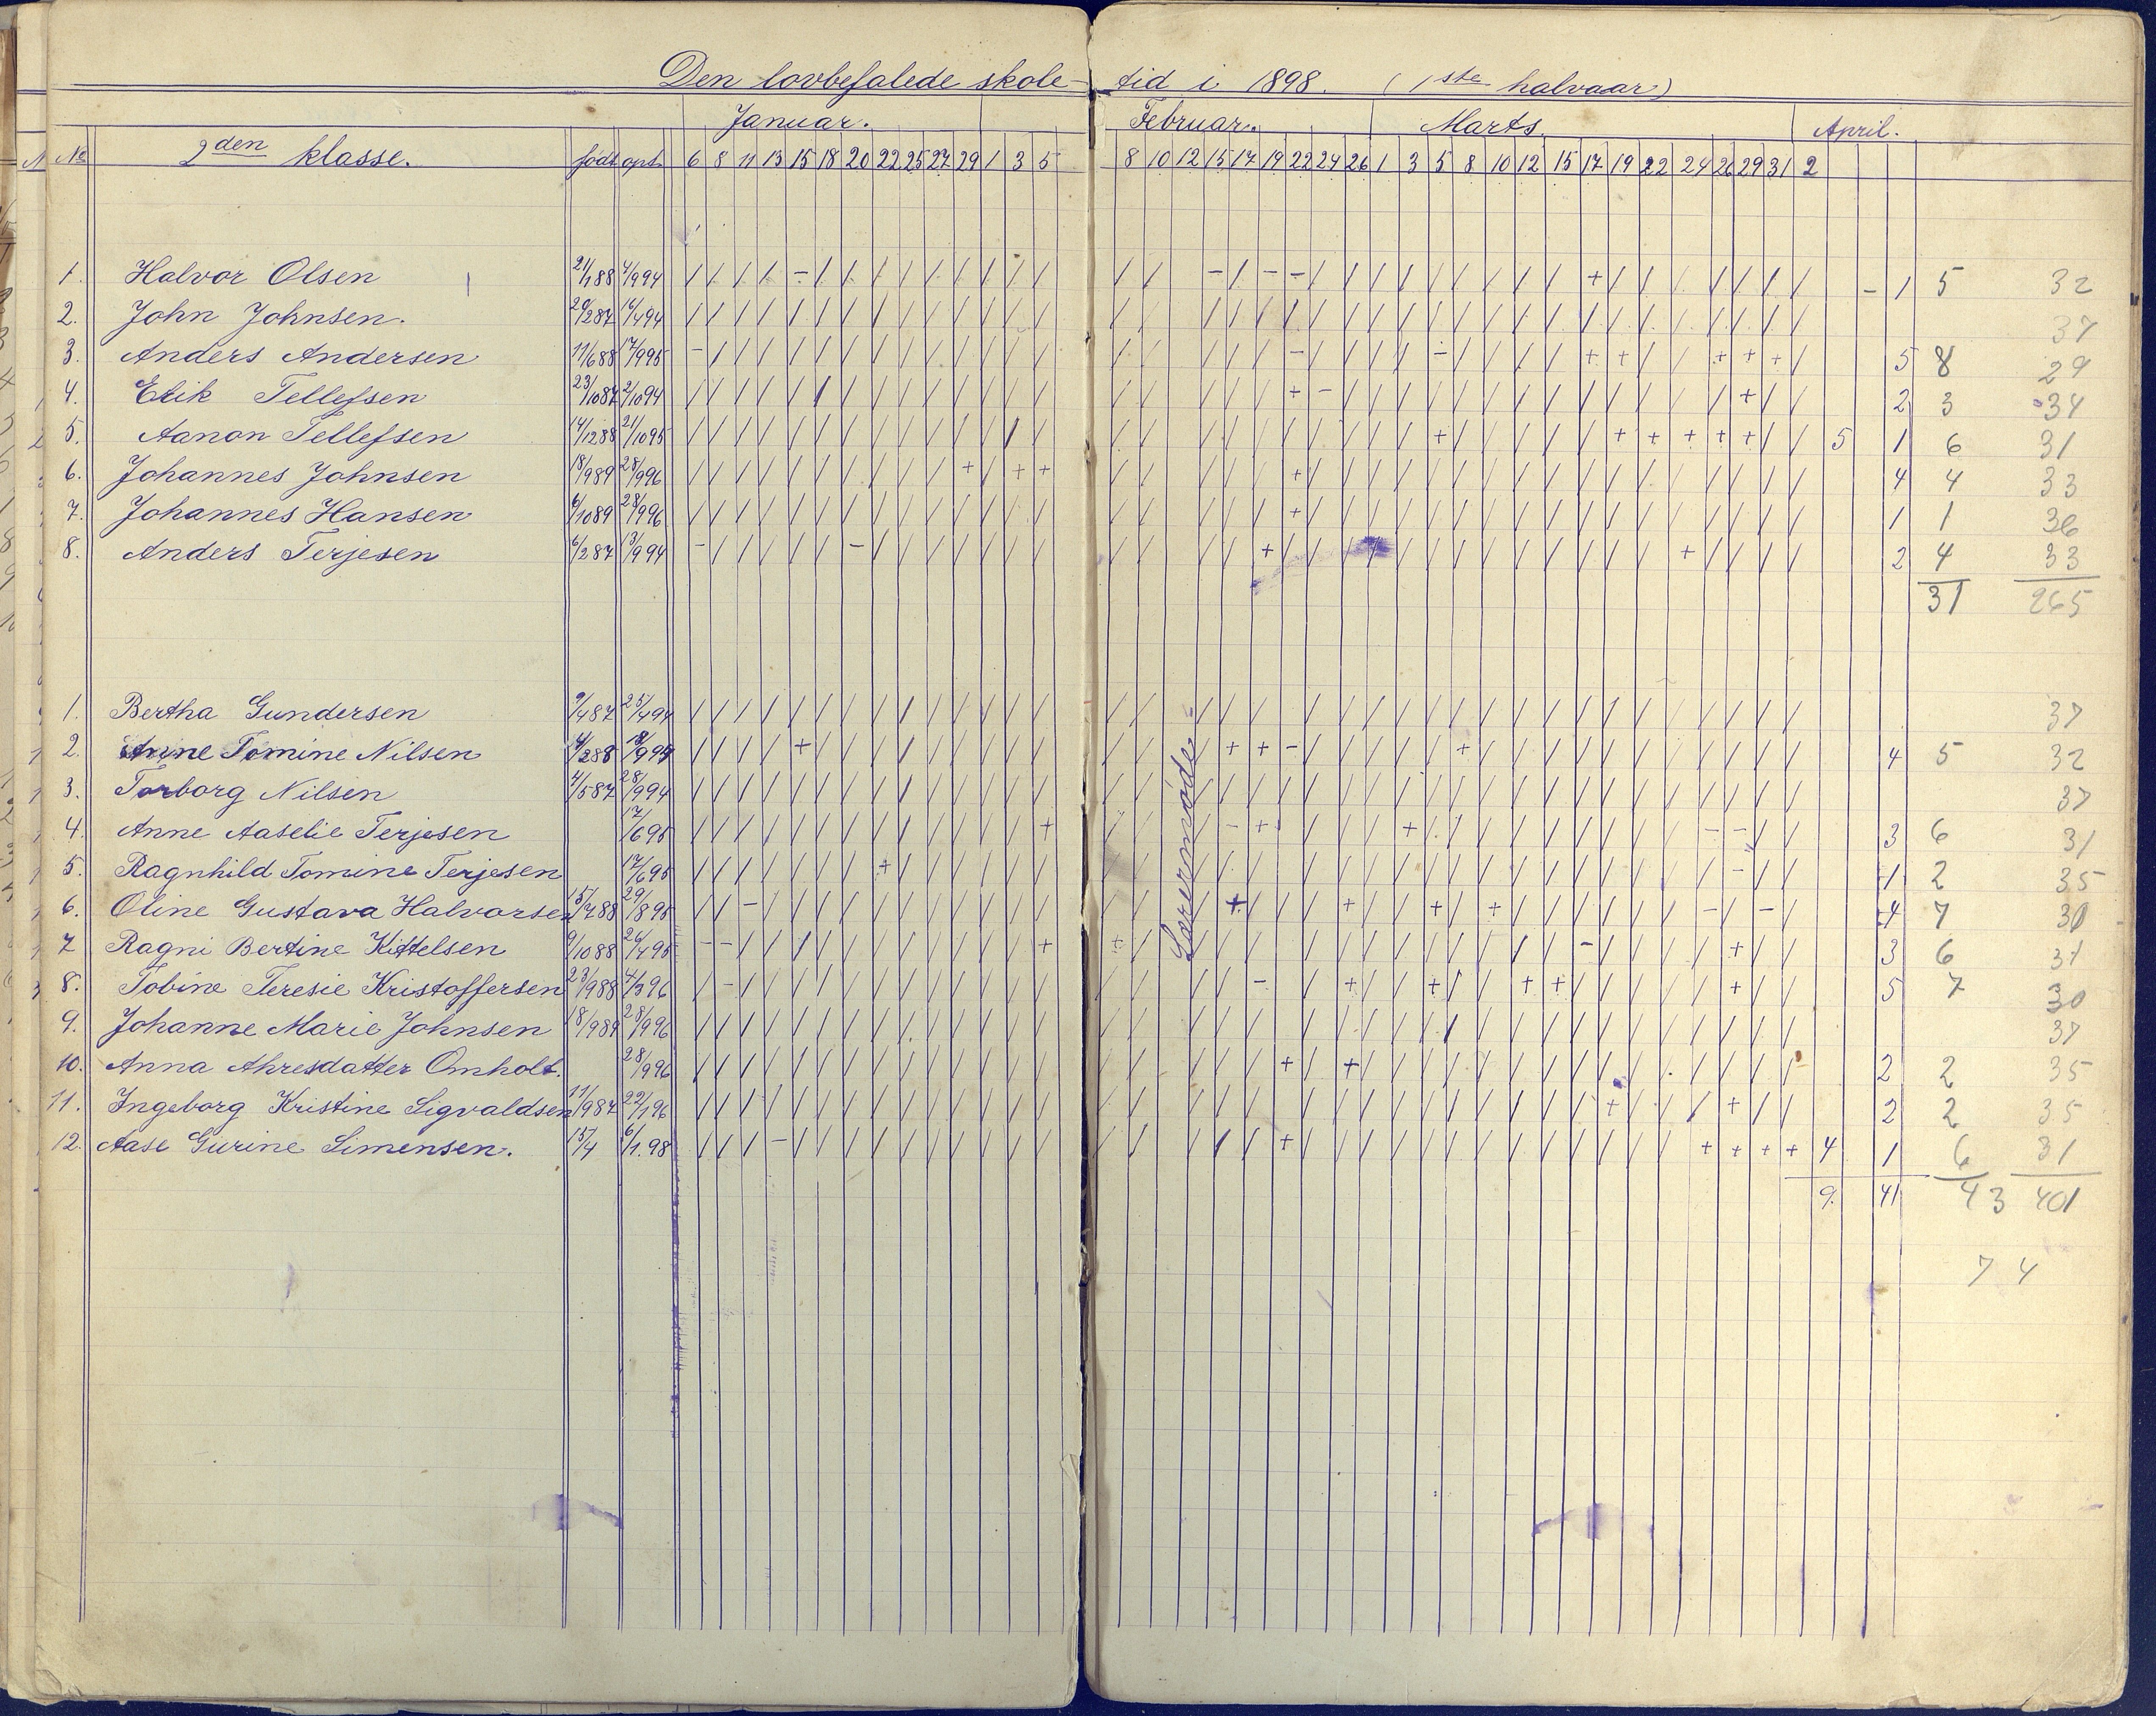 Den lovbefalede skole- tid i 1898. (1ste halvaar)
Januar. Februar. Marts. April.
No 2den klasse. født opt. 6 8 11 13 15 18 20 22 25 27 29 1 3 5 8 10 12 15 17 19 22 24 26 1 3 5 8 10 12 15 17 19 22 24 26 29 31 2
1. Halvor Olsen 21/188 4/994 / / / / - / / / / / / / / / / / - / - - / / / / / / / / / + / / / / / / / - 1 5 32
2. John Johnsen. 29/287 16/494 / / / / / / / / / / / / / / / / / / / / / / / / / / / / / / / / / / / / / 37
3. Anders Andersen 11/688 17/995 - / / / / / / / / / / / / / / / / / / - / / / / - / / / / + + / / + + + / 5 8 29
4. Erik Tellefsen 23/1087 2/1094 / / / / / / / / / / / / / / / / / / / + - / / / / / / / / / / / / / + / / 2 3 34
5. Aanon Tellefsen 14/1288 21/1095 / / / / / / / / / / / / / / / / / / / / / / / / + / / / / / + + + + + / / 5 1 6 31
6. Johannes Johnsen 18/989 28/996 / / / / / / / / / + / + + / / / / / + / / / / / / / / / / / / / / / / / 4 4 33
7. Johannes Hansen 6/1089 28/996 / / / / / / / / / / / / / / / / / / / + / / / / / / / / / / / / / / / / / 1 1 36
8. Anders Terjesen 6/287 13/994 - / / / / / - / / / / / / / / / / / + / / / / / / / / / / / / / + / / / / 2 4 33
31 265
1. Bertha Gundersen 9/487 25/494 / / / / / / / / / / / / / / / / / / / / / / / / / / / / / / / / / / / / / 37
2. Anne Tomine Nilsen 4/288 18/994 / / / / + / / / / / / / / / / / / + + - / / / / / + / / / / / / / / / / / 4 5 32
3. Torborg Nilsen 4/587 28/994 / / / / / / / / / / / / / / / / / / / / / / / / / / / / / / / / / / / / / 37
4. Anne Aaselie Terjesen 17/695 / / / / / / / / / / / / / + / / / - + / / / / + / / / / / / / / / - - / / 3 6 31
5. Ragnhild Tomine Terjesen 17/695 / / / / / / / + / / / / / / / / / / / / / / / / / / / / / / / / / / - / / 1 2 35
6. Oline Gustava Halvorsen 15/788 29/895 / / - / / / / / / / / / / / / / / + / / / + / / + / + / / / / / / - / - / 4 7 30
7 Ragni Bertine Kittelsen 9/1088 26/495 - - / / / / / / / / / / / + + / / / / / / / / / / / / / / - / / / / + / / 3 6 31
8. Tobine Teresie Kristoffersen 23/988 4/396 / - / / / / / / / / / / / / / / / / - / / + / / + / / + + / / / / / + / / 5 7 30
9. Johanne Marie Johnsen 18/989 28/996 / / / / / / / / / / / / / / / / / / / / / / / / / / / / / / / / / / / / / 37
10. Anna Ahresdatter Omholt. 28/996 / / / / / / / / / / / / / / / / / / / + / + / / / / / / / / / / / / / / / 2 2 35
11. Ingeborg Kristine Sigvaldsen 11/987 22/196 / / / / / / / / / / / / / / / / / / / / / / / / / / / / / / + / / / + / / 2 2 35
12. Aase Gurine Simensen. 15/4 6/1.98 / / / - / / / / / / / / / / / / / / / + / / / / / / / / / / / / / + + + + 4 1 6 31
9. 41 43 401
74
Lærermøde